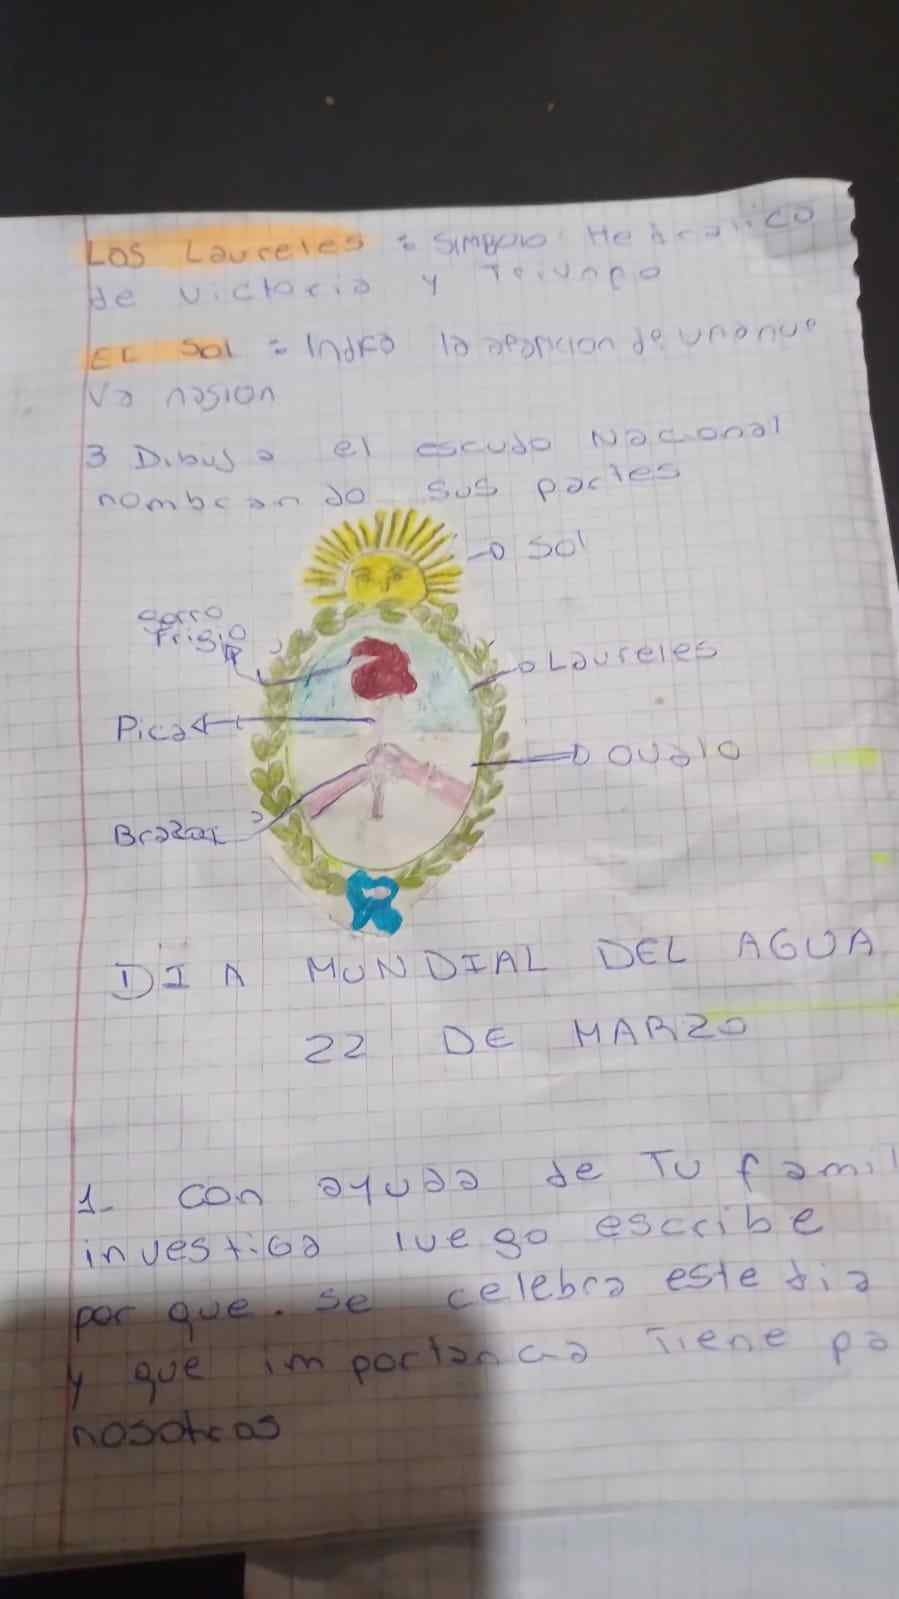 Los Laureles = simbolo Hebralico
de victoria y Triunpo
EL Sol = Indica la aparicion de una nue
va nasion
3 Dibuja el escudo Nacional
nombrando sus partes
Sol
Gorro
Frigio
Laureles
Pica
Ovalo
Brazos
DIA MUNDIAL DEL AGUA
22 DE MARZO
1- con ayuda de Tu famil
investiga luego escribe
por que. se celebra este dia
y que importancia Tiene pa
nosotros